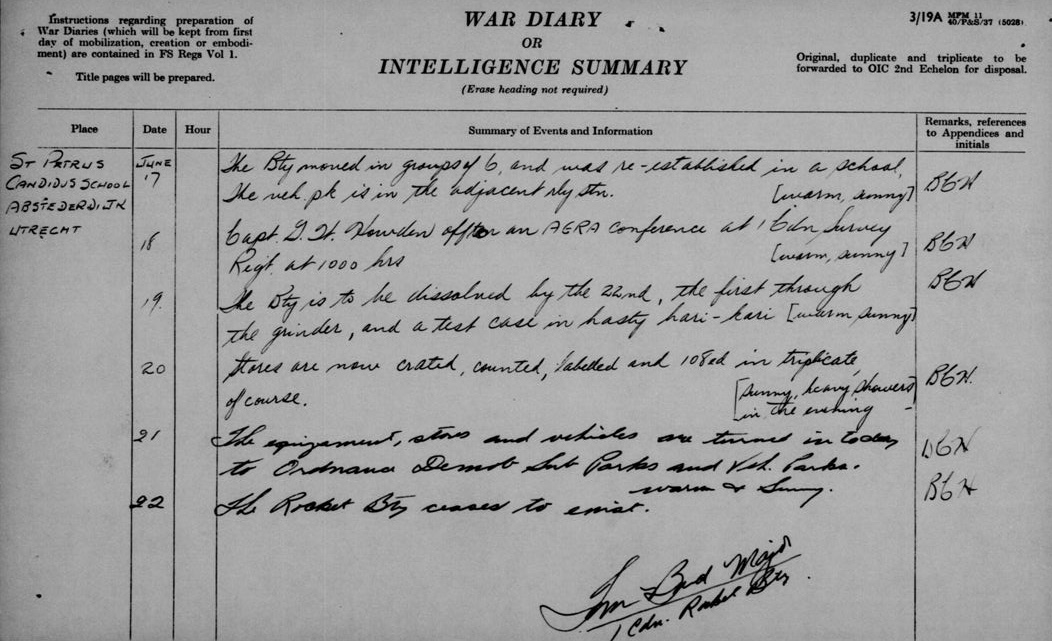 Instructions regarding preparation of
War Diaries (which will be kept from first
day of mobilization, creation or embodi-
ment) are contained in FS Regs Vol 1.
Title pages will be prepared.
WAR DIARY
OR
INTELLIGENCE SUMMARY
(Erase heading not required)
3/19A MFM 11
40/P&S/37 (5028)
Original, duplicate and triplicate to be
forwarded to OIC 2nd Echelon for disposal.
Place Date Hour Summary of Events and Information Remarks, references
to Appendices and
initials
ST PETRUS
CANDIDUS SCHOOL
ABSTEDERDIJK
UTRECHT
JUNE
17 The Bty moved in groups of 6, and was re-established in a school,
The veh pk is in the adjacent Rly Stn. [warm, sunny] BGH
18 Capt. G. H. Howden off to an AGRA conference at 1 Cdn Survey
Regt. at 1000 hrs [warm, sunny] BGH
19. The Bty is to be dissolved by the 22nd, the first through BGH
the grinder, and a test case in hasty hari-kari [warm sunny]
20 Stores are now crated, counted, labelled and 108ed in triplicate,
of course. [sunny, heavy showers BGH.
in the evening
21 The equipment, stores and vehicles are turned in today
to Ordnance Demob Sub Parks and Veh. Parks. BGH
warm & Sunny.
22 The Rocket Bty ceases to exist. BGH
Major
1 Cdn. Rocket Bty.